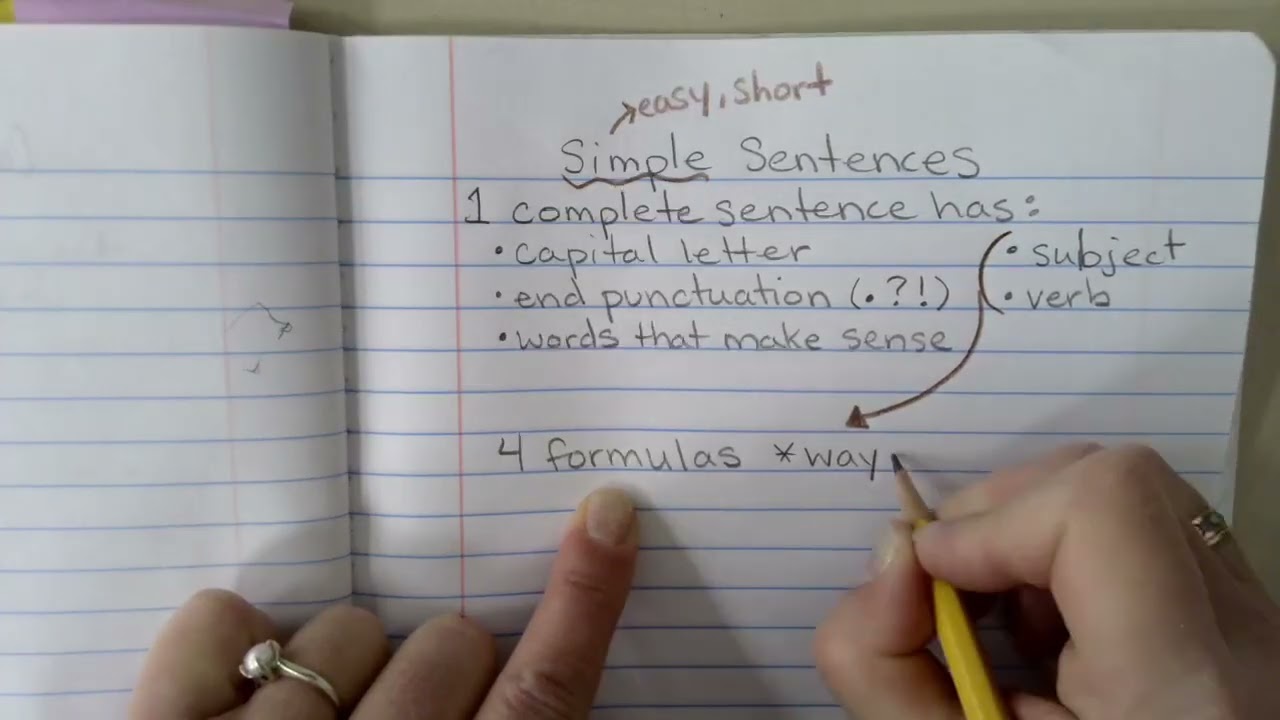 easy, short
Simple Sentences
1 complete sentence has:
• capital letter
• end punctuation (.?!)
• words that make sense
• subject
• verb
4 formulas *way